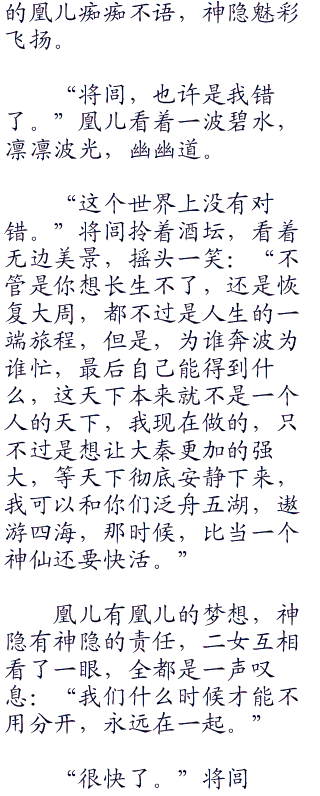 的凰儿痴痴不语，神隐魅彩
飞扬。
“将闾，也许是我错
了。”凰儿看着一波碧水，
凛凛波光，幽幽道。
“这个世界上没有对
错。”将闾拎着酒坛，看着
无边美景，摇头一笑：“不
管是你想长生不了，还是恢
复大周，都不过是人生的一
端旅程，但是，为谁奔波为
谁忙，最后自己能得到什
么，这天下本来就不是一个
人的天下，我现在做的，只
不过是想让大秦更加的强
大，等天下彻底安静下来，
我可以和你们泛舟五湖，遨
游四海，那时候，比当一个
神仙还要快活。”
凰儿有凰儿的梦想，神
隐有神隐的责任，二女互相
看了一眼，全都是一声叹
息：“我们什么时候才能不
用分开，永远在一起。”
“很快了。”将闾